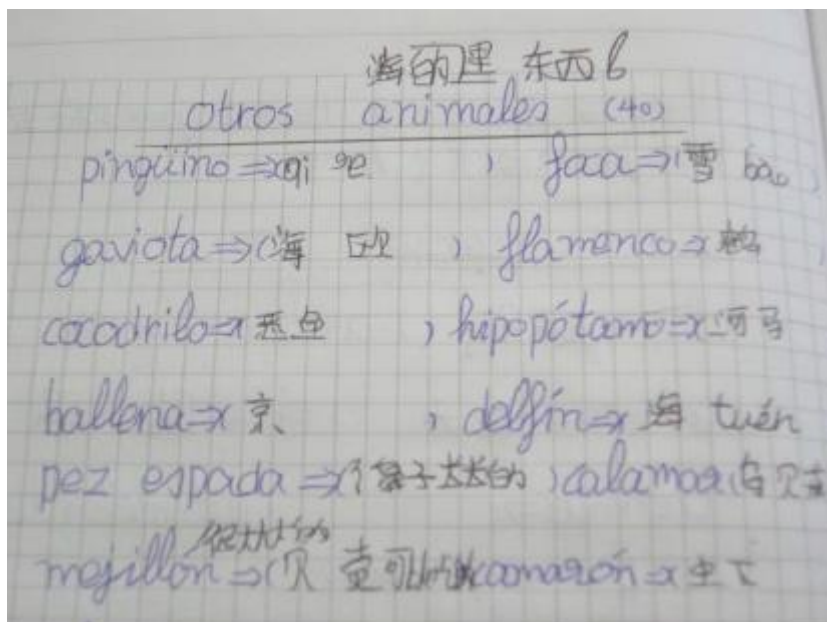 海的里 东西6
otros animales (40)
pingüino⇒(qi ge , foca⇒(雪 bao ,
gaviota⇒(海 区欠 , flamenco⇒
cocodrilo⇒ , hipopótamo⇒(河马
ballena⇒(京 , delfín⇒(海 tuén
pez espada⇒(鼻子太长的 , calamar
很大大的
mejillón⇒(贝 壳 camarón⇒(虫下